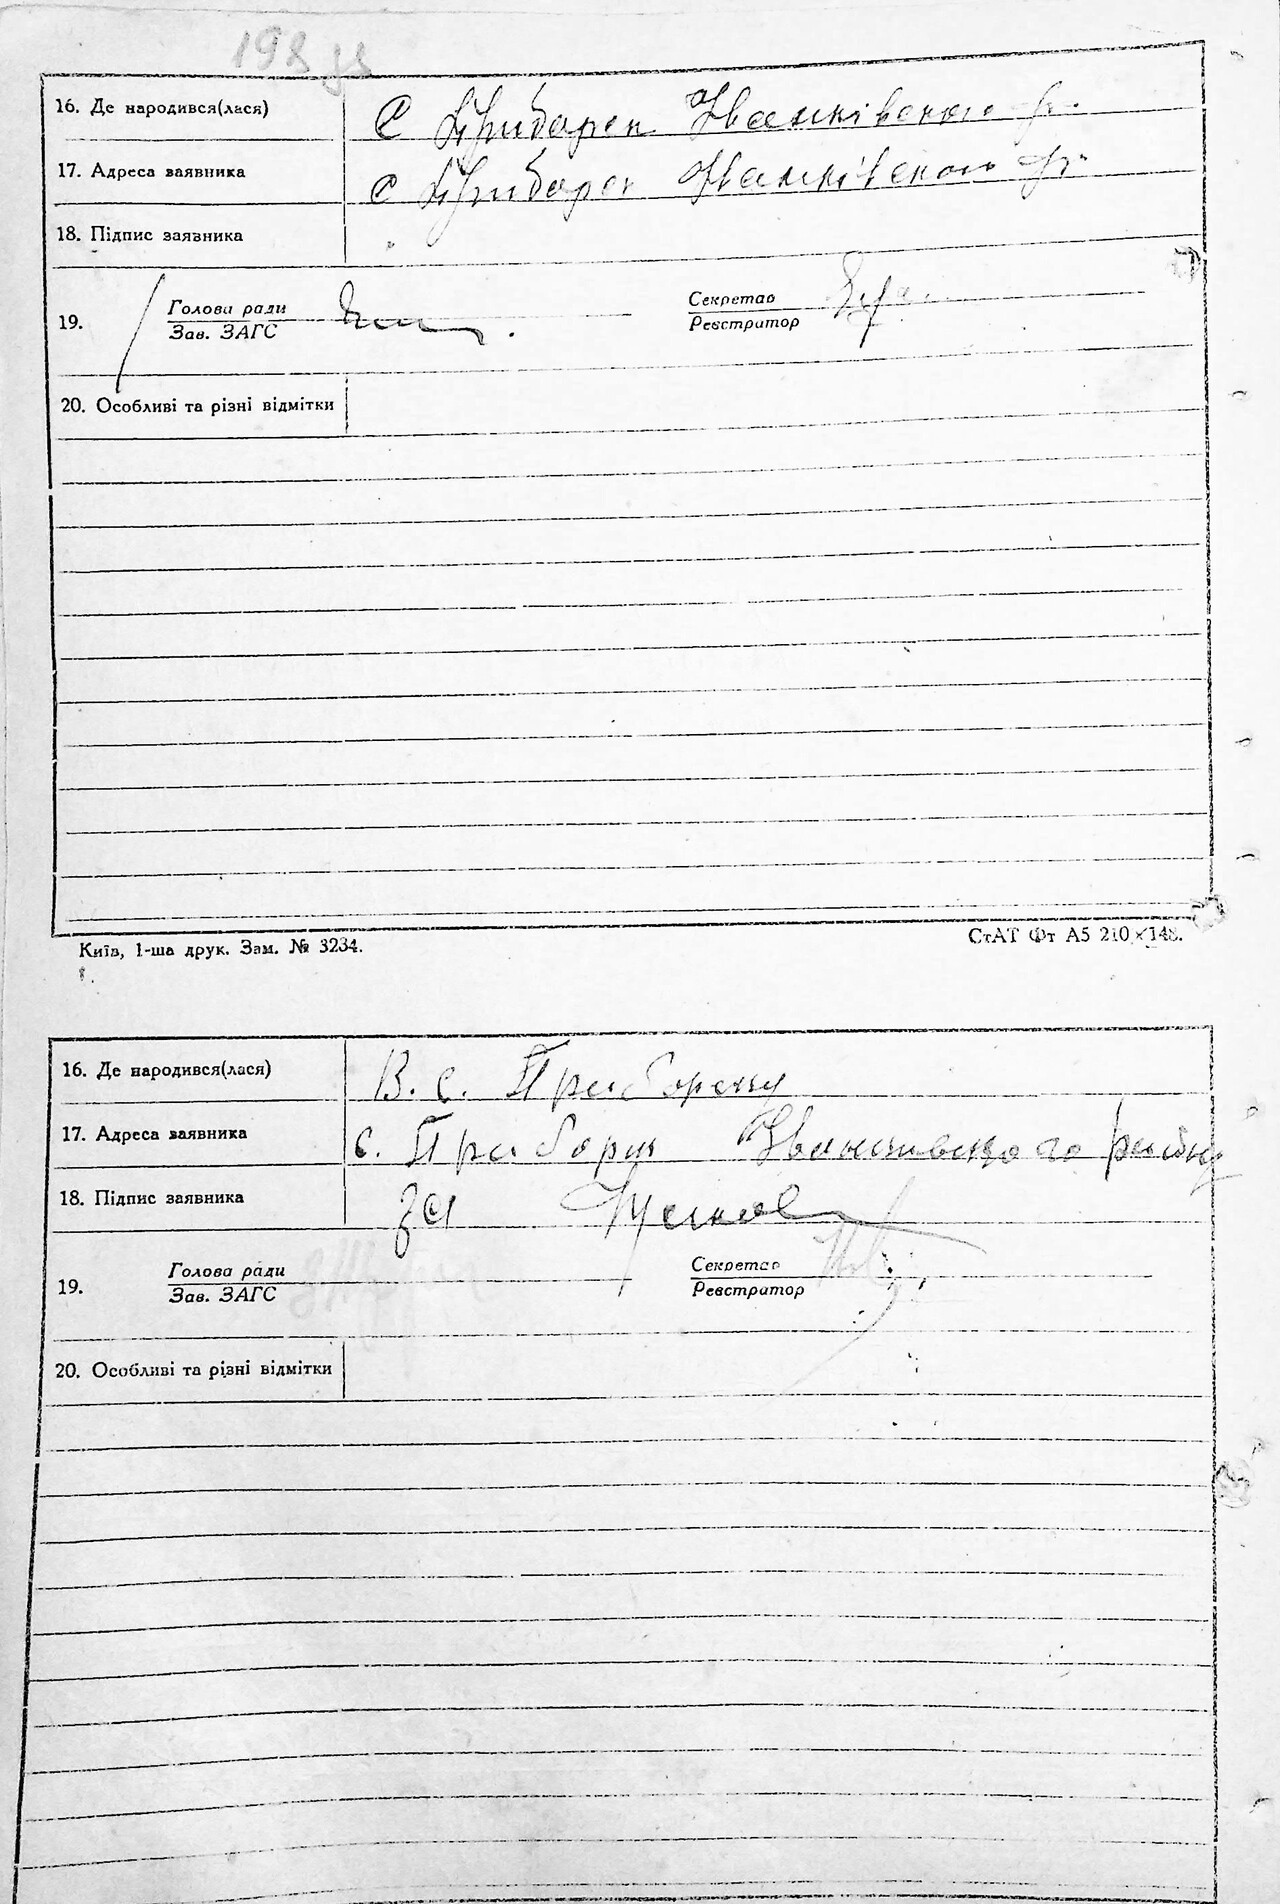 16. Де народився(лася) С Прибарск Іванківского р.
17. Адреса заявника с Прибарск Іванківского р.
18. Підпис заявника
Голова ради Секретар
19.
Зав. ЗАГС Реєстратор
20. Особливі та різні відмітки
Київ, 1-ша друк. Зам. № 3234. СтАТ Фт А5 210×148.
16. Де народився(лася) В. с. Приборску
17. Адреса заявника с. Приборск
18. Підпис заявника за
Голова ради Секретар
19.
Зав. ЗАГС Реєстратор
20. Особливі та різні відмітки